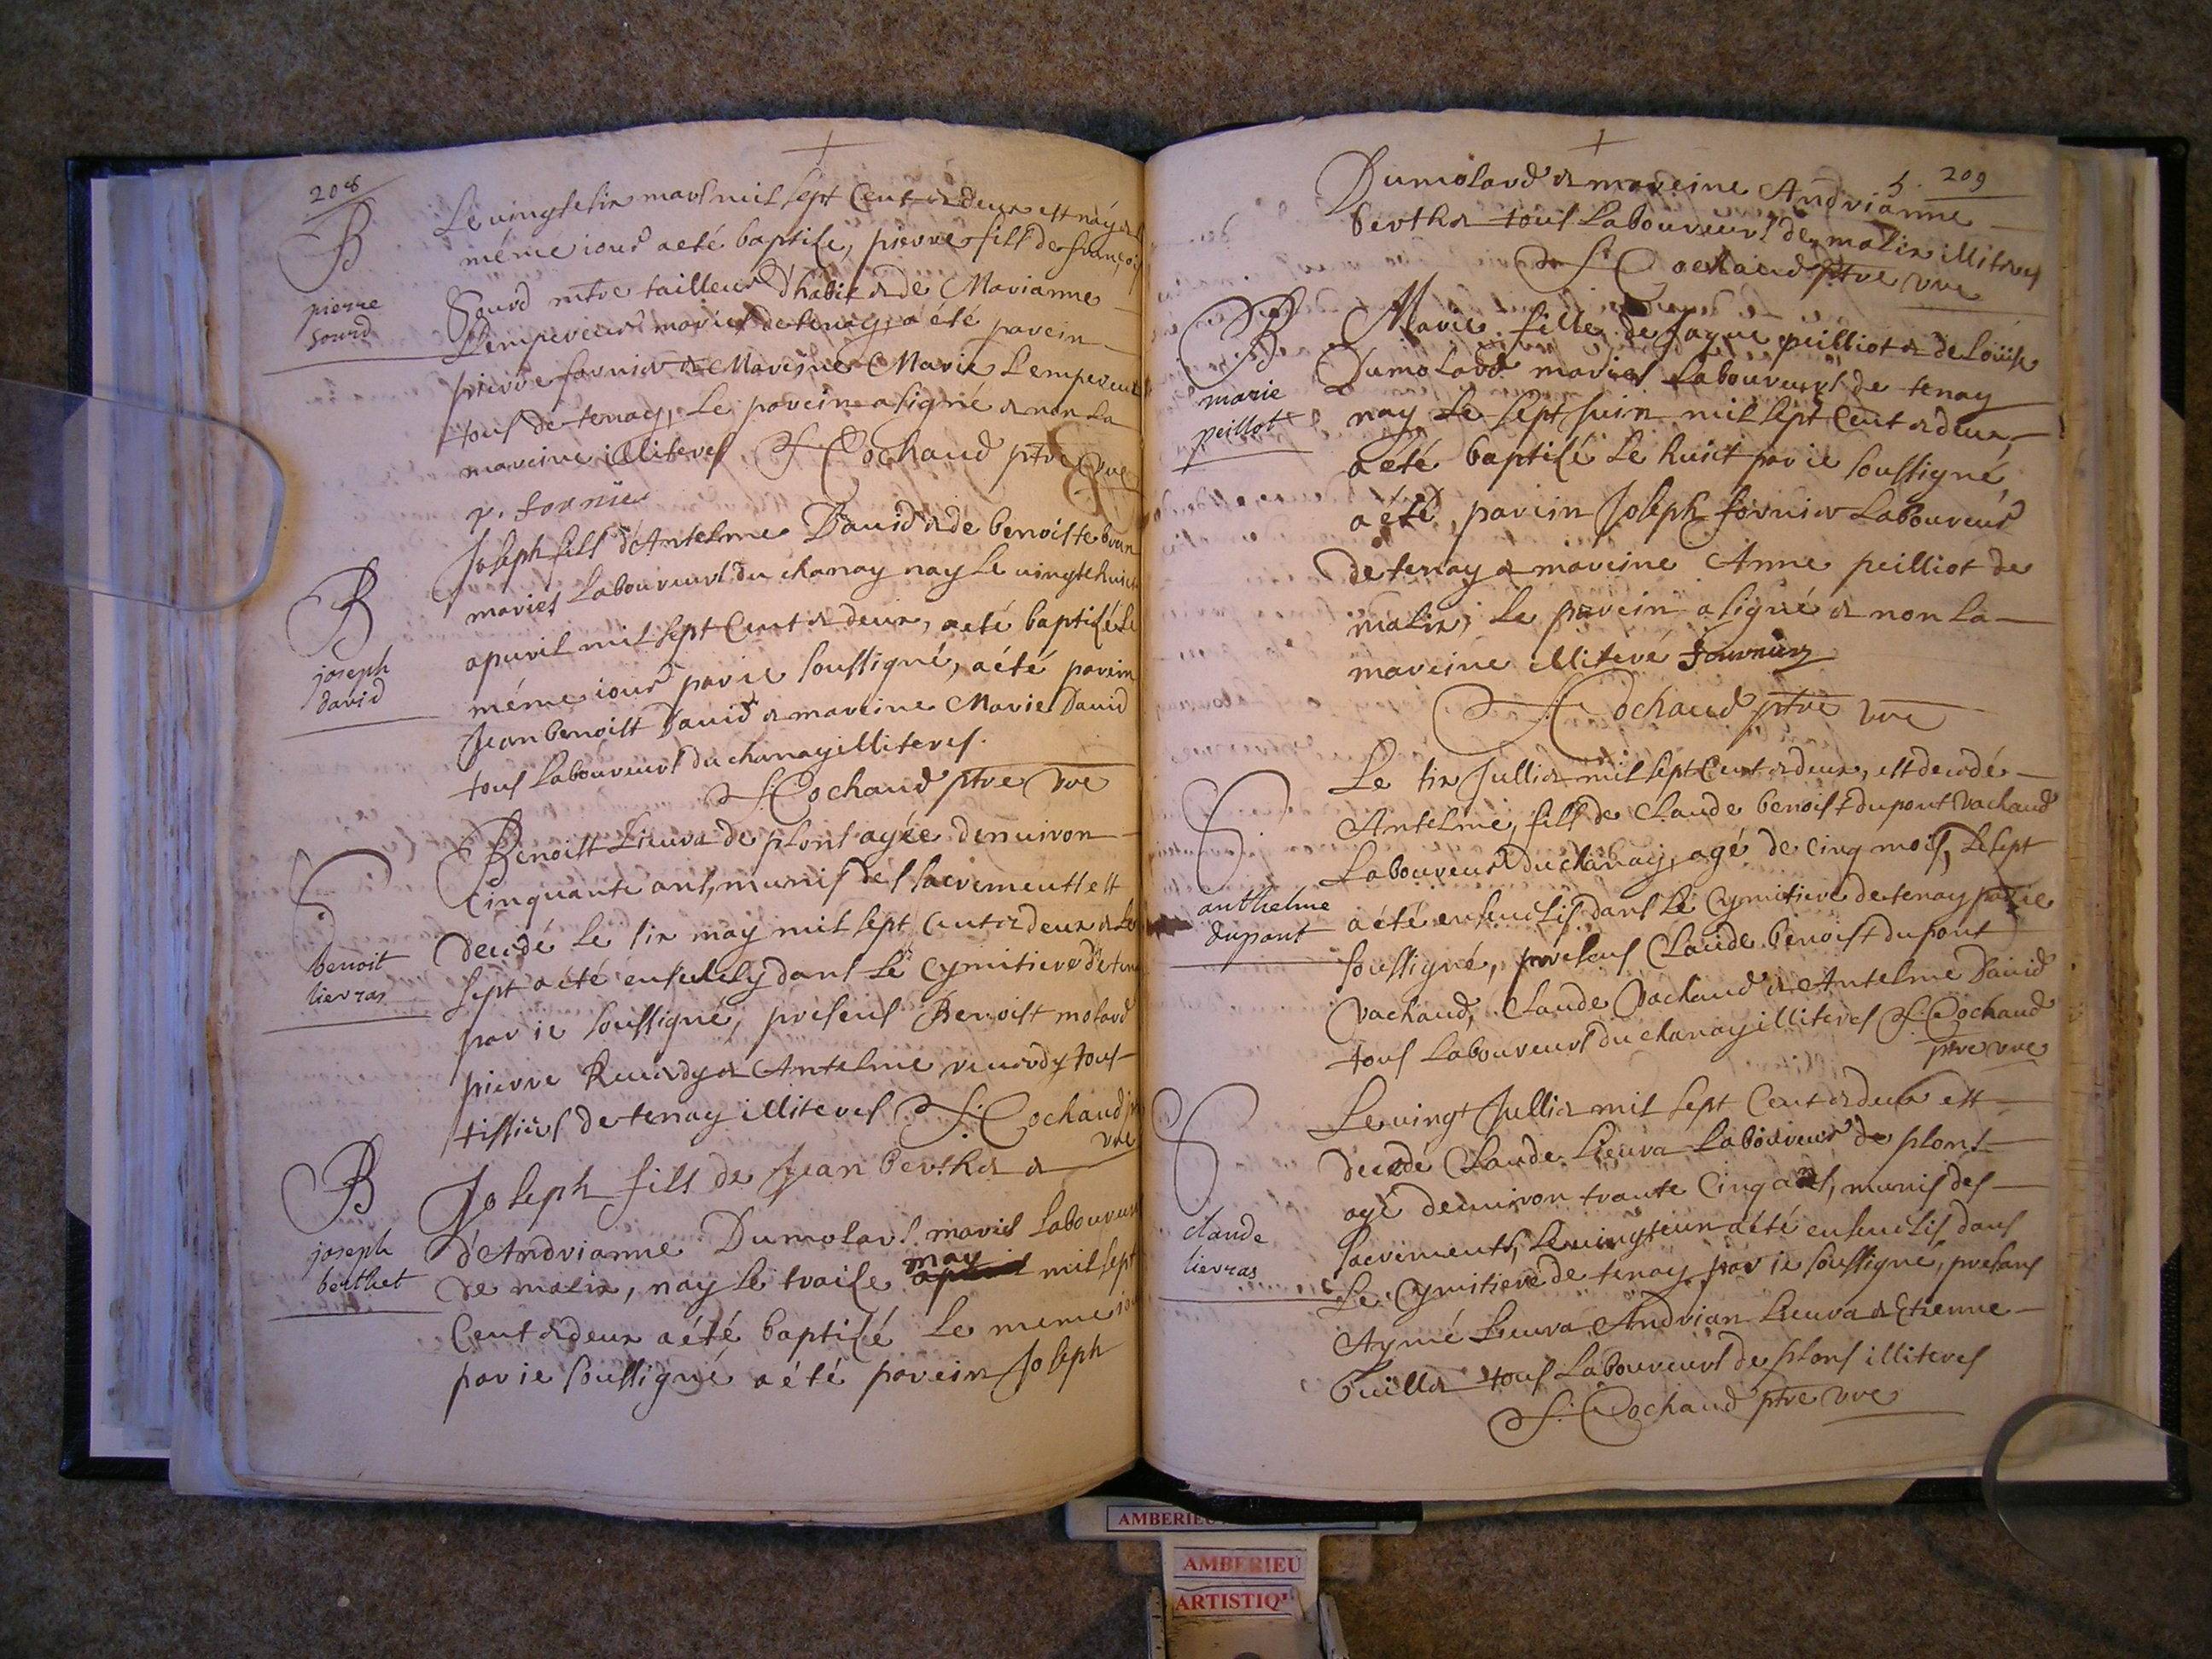 208
B
pierre
sourd
Le vingtesix mars mil sept Cent et deux est nay et
méme iour a eté baptisé, pierre fils de françois
Sourd mtre tailleur d'habit et de Marianne
Lempereur mariés de tenay, a été parein
pierre fornier et Mareine Marie Lempereur
tous de tenay, Le parein a signé et non la
mareine illiteres F. Cochaud ptre vre
p. fornier
B
joseph
david
Joseph fils d'Antelme David et de benoiste brun
mariés Laboureurs du chanay nay Le vingtehuict
apuril mil sept Cent et deux, a eté baptisé Le
méme iour par ie soussigné, a été parein
Jean benoist David et mareine Marie David
tous Laboureurs du chanay illiteres.
F. Cochaud ptre vre
S
benoit
lievras
Benoist Lieura de plons agée denuiron
Cinquante ans, munis des sacrements est
decedé Le six may mil sept Cent et deux et Le
sept a eté enseuely dans Le Cymitiere de tenay
par ie soussigné, presens Benoist molard
pierre Reuerdy et Antelme reuerdy tous
tissiers de tenay illiteres F. Cochaud ptre
vre
B
joseph
berthet
Joseph fils de Jean berthet et
d'Andrianne Dumolard mariés Laboureurs
de malix, nay Le traise may mil sept
Cent et deux a été baptisé Le meme iour
par ie soussigné a été parein Joseph
5. 209
Dumolard et mareine Andrianne
berthet tous Laboureurs de malix illiteres
F. Cochaud ptre vre
B
marie
peillot
Marie fille de Jaque peilliot et de Loüise
Dumolard mariés Laboureurs de tenay
nay Le sept Juin mil sept Cent et deux,
a été baptisé Le huict par ie soussigné,
a été parein Joseph fornier Laboureur
de tenay et mareine Anne peilliot de
malix, Le parein a signé et non la
mareine illiteré fournier
F. Cochaud ptre vre
S
anthelme
dupont
Le six Jullet mil sept Cent et deux, est decedé
Antelme, fils de Claude benoist dupont Vachaud
Laboureur du chanay, agé de cinq mois, Le sept
a été enseuelis dans Le Cymitiere de tenay par ie
soussigné, presens Claude benoist dupont
Vachaud, Claude Vachaud et Antelme David
tous Laboureurs du chanay illiteres F. Cochaud
ptre vre
S
claude
lievras
Le vingt Jullet mil sept Cent et deux est
decedé Claude Lieura Laboureur de plons
agé denuiron trante Cinq ans, munis des
sacrements, Le vingteun a été enseuelis dans
Le Cymitiere de tenay par ie soussigné, presans
Aymé Lieura Andrian Lieura et Etienne
buillet tous Laboureurs de plons illiteres
F. Cochaud ptre vre
AMBERIEU
AMBERIEU
ARTISTIQ'